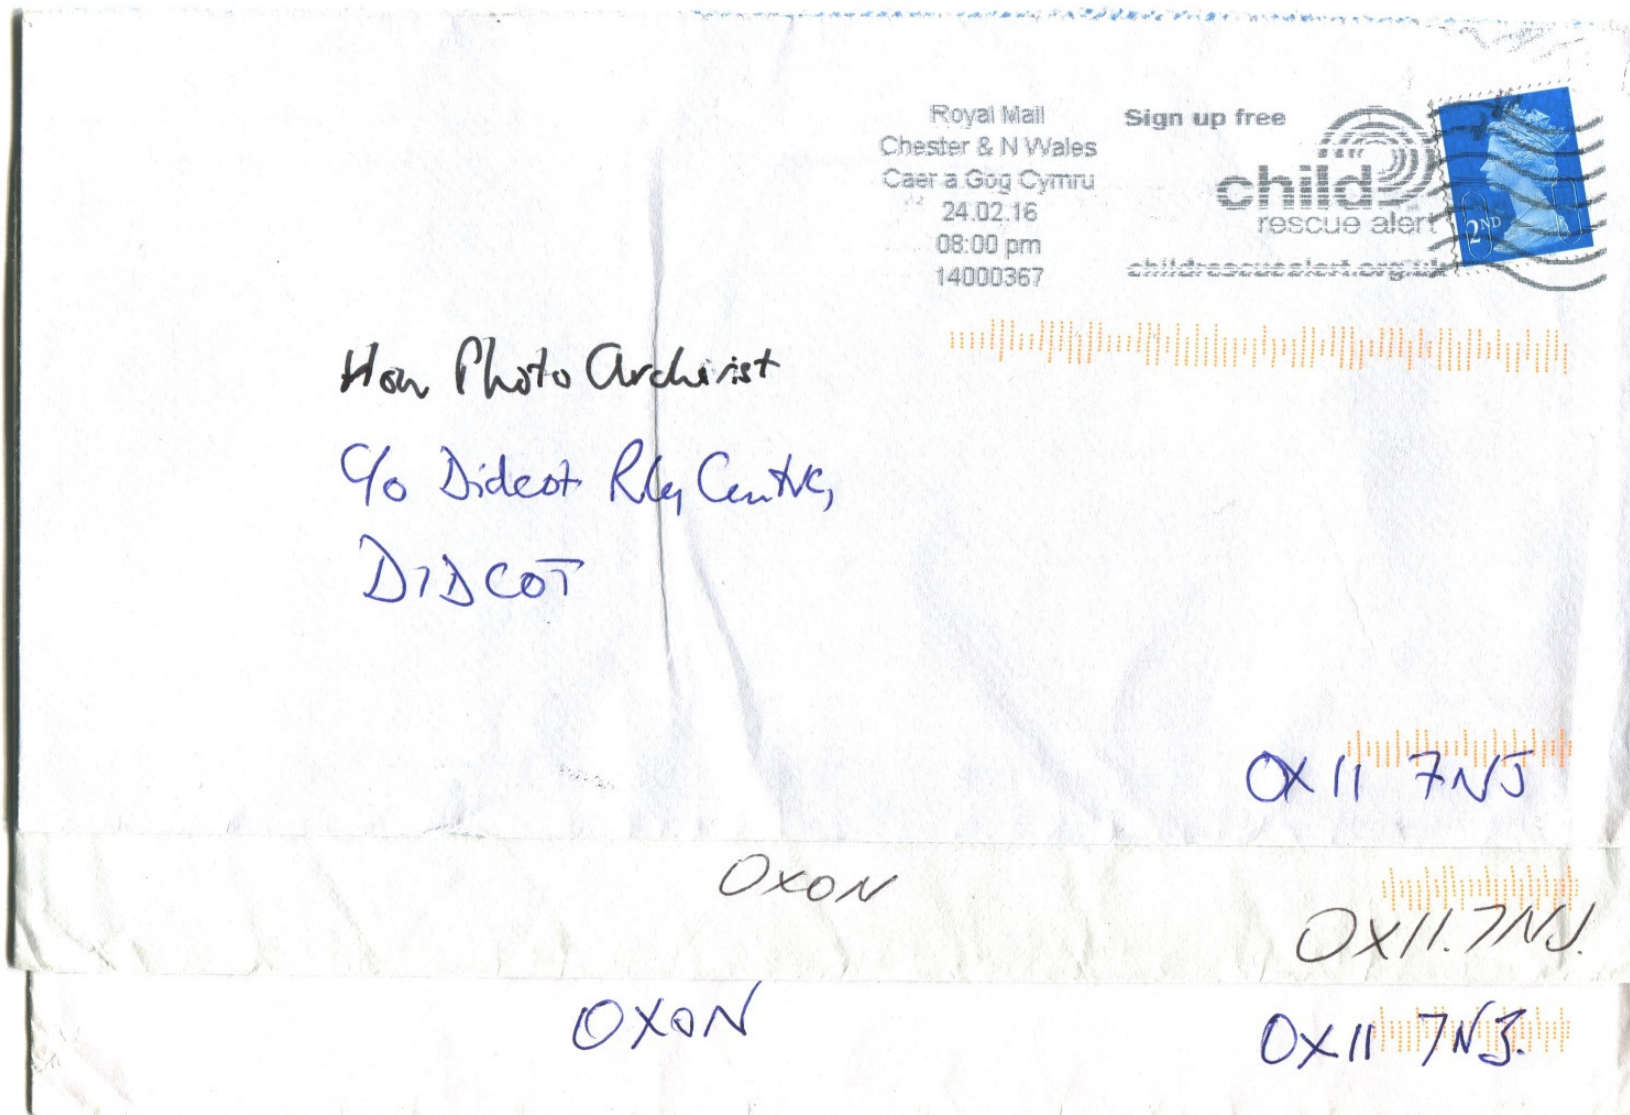 Royal Mail
Chester & N Wales
Caer a Gog Cymru
24.02.16
08:00 pm
14000367
Sign up free
child
rescue alert
childrescuealert.org.uk
2ND
Hon Photo Archivist
C/o Didcot Rly Centre,
DIDCOT
OX11 7NJ
OXON
OX11.7NJ.
OXON
OX11 7NJ.